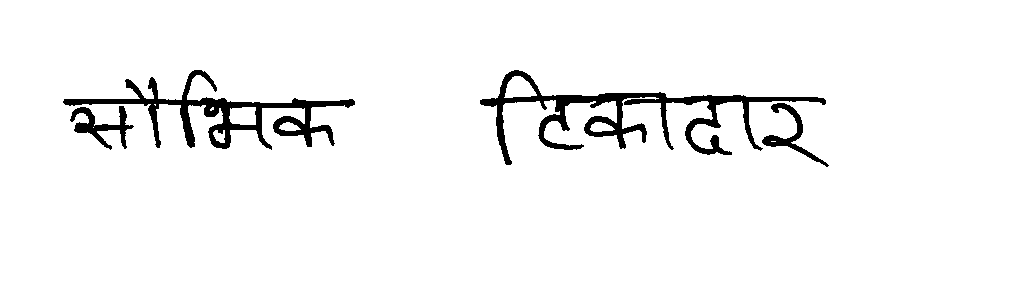 सौमिक टिकादार